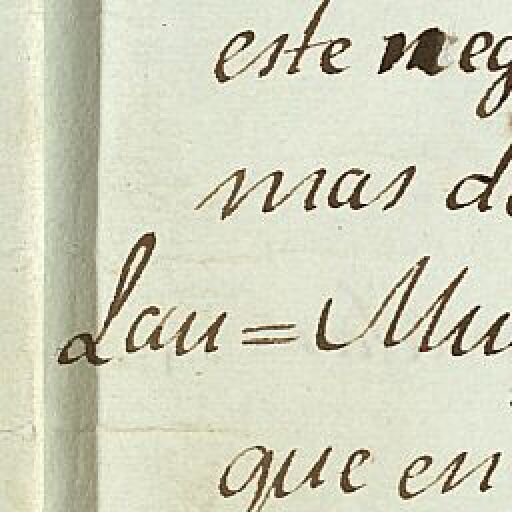 este neg
mas de
Lau = Mu
que en